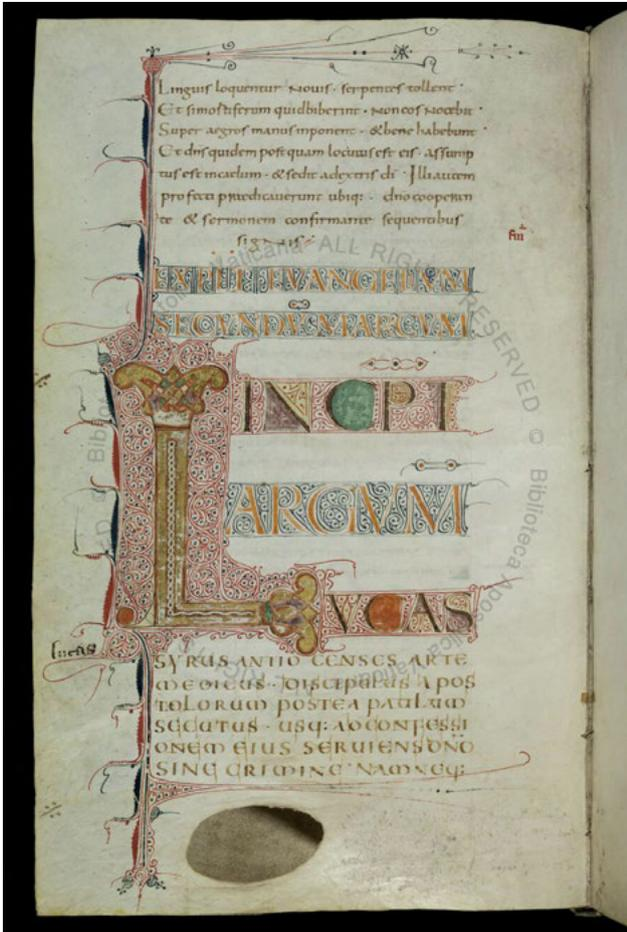 Linguis loquentur novis · serpentes tollent ·
Et simortiferum quidbiberint · non eos nocebit ·
Super aegros manus inponent · & bene habebunt ·
Et dns quidem postquam locutus est eis · assump
tus est incaelum · & sedit adextris di · Illi autem
profecti praedicaverunt ubiq: · dno cooperan
te & sermonem confirmante sequentibus
signis
EXPLIT EVANGELIUM
SECUNDU MARCUM
INCIPI
ARGUM
LUCAS
lucas
SYRUS ANTIO CENSES ARTE
MEDICUS · DISCIPULUS APOS
TOLORUM POSTEA PAULUM
SECUTUS · USQ: AD CONFESSI
ONEM EIUS SERVIENS DNO
SINE CRIMINE · NAM NEQ:
ALL RIGHTS RESERVED © Biblioteca Apostolica Vaticana